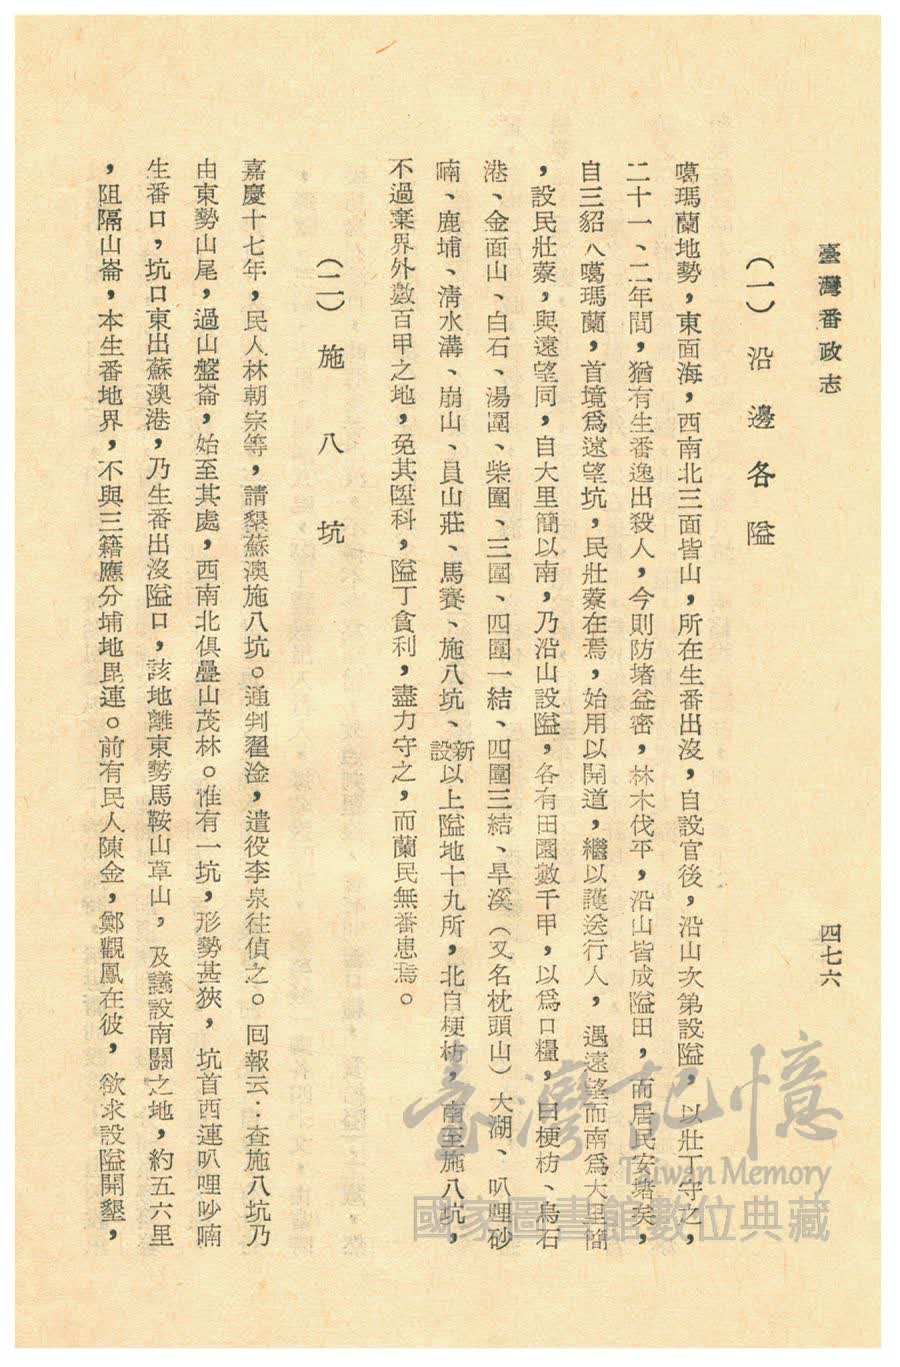 臺灣番政志
四七六
(一) 沿邊各隘
噶瑪蘭地勢,東面海,西南北三面皆山,所在生番出沒,自設官後,沿山次第設隘,以壯丁守之,
二十一、二年間,猶有生番逸出殺人,今則防堵益密,林木伐平,沿山皆成隘田,而居民安堵矣,
自三貂入噶瑪蘭,首境爲遠望坑,民壯藔在焉,始用以開道,繼以護送行人,遇遠望而南爲大里簡
,設民壯藔,與遠望同,自大里簡以南,乃沿山設隘,各有田園數千甲,以爲口糧,曰梗枋、烏石
港、金面山、白石、湯圍、柴圍、三圍、四圍一結、四圍三結、旱溪(又名枕頭山)大湖、叭哩砂
喃、鹿埔、淸水溝、崩山、員山莊、馬賽、施八坑、新設以上隘地十九所,北自梗枋,南至施八坑,
不過棄界外數百甲之地,免其陞科,隘丁貪利,盡力守之,而蘭民無番患焉。
(二) 施八坑
嘉慶十七年,民人林朝宗等,請墾蘇澳施八坑。通判翟淦,遣役李泉往偵之。囘報云:查施八坑乃
由東勢山尾,過山盤崙,始至其處,西南北俱疊山茂林。惟有一坑,形勢甚狹,坑首西連叭哩吵喃
生番口,坑口東出蘇澳港,乃生番出沒隘口,該地離東勢馬鞍山草山,及議設南關之地,約五六里
,阻隔山崙,本生番地界,不與三籍應分埔地毘連。前有民人陳金,鄭觀鳳在彼,欲求設隘開墾,
臺灣記憶
Taiwan Memory
國家圖書館數位典藏